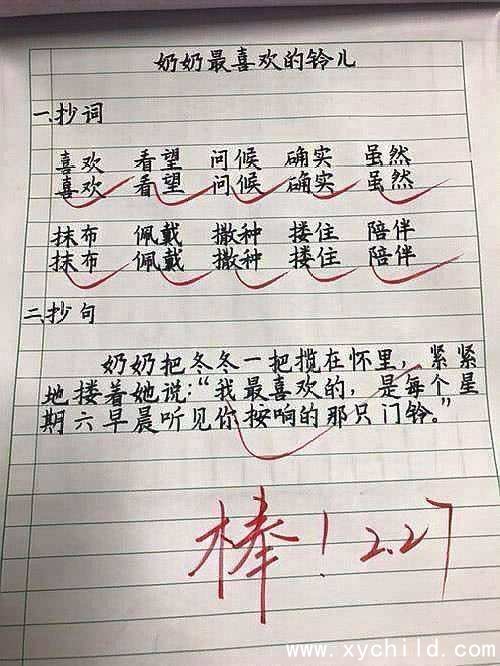 奶奶最喜欢的铃儿
一.抄词
喜欢 看望 问候 确实 虽然
喜欢 看望 问候 确实 虽然
抹布 佩戴 撒种 搂住 陪伴
抹布 佩戴 撒种 搂住 陪伴
二.抄句
奶奶把冬冬一把揽在怀里，紧紧
地搂着她说：“我最喜欢的，是每个星
期六早晨听见你按响的那只门铃。”
棒！2.27
www.xychild.com